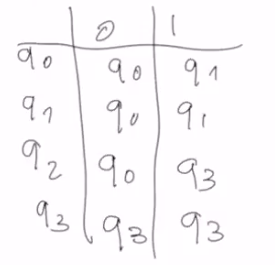 0 1
q0 q0 q1
q1 q0 q1
q2 q0 q3
q3 q3 q3